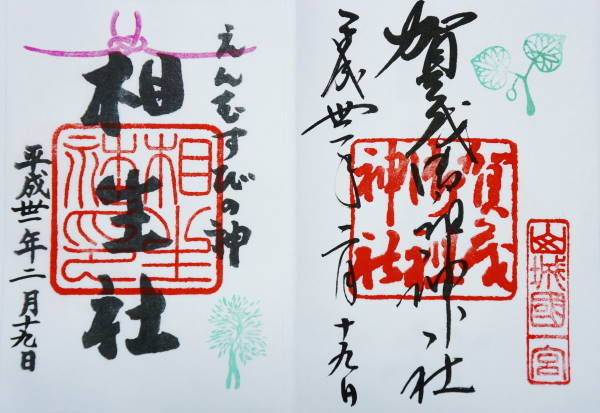 山城國一宮
賀茂御祖神社
賀茂
御祖
神社
平成卅一年二月十九日
えんむすびの神
相生社
平成卅一年二月十九日